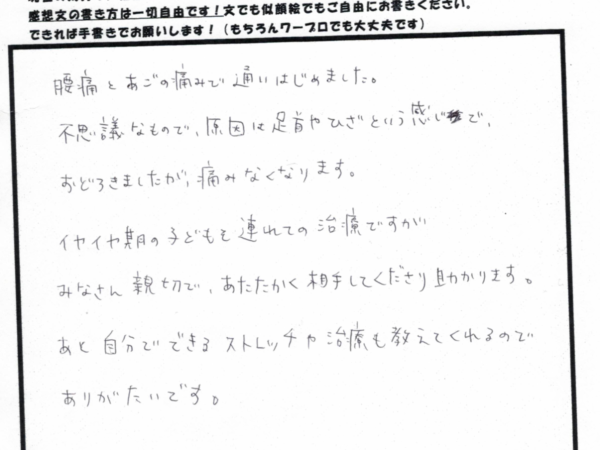 感想文の書き方は一切自由です！文でも似顔絵でもご自由にお書きください。
できれば手書きでお願いします！（もちろんワープロでも大丈夫です）
腰痛とあごの痛みで通いはじめました。
不思議なもので、原因は足首やひざという感じで、
おどろきましたが、痛みなくなります。
イヤイヤ期の子どもを連れての治療ですが
みなさん親切で、あたたかく相手してくださり助かります。
あと自分でできるストレッチや治療も教えてくれるので
ありがたいです。